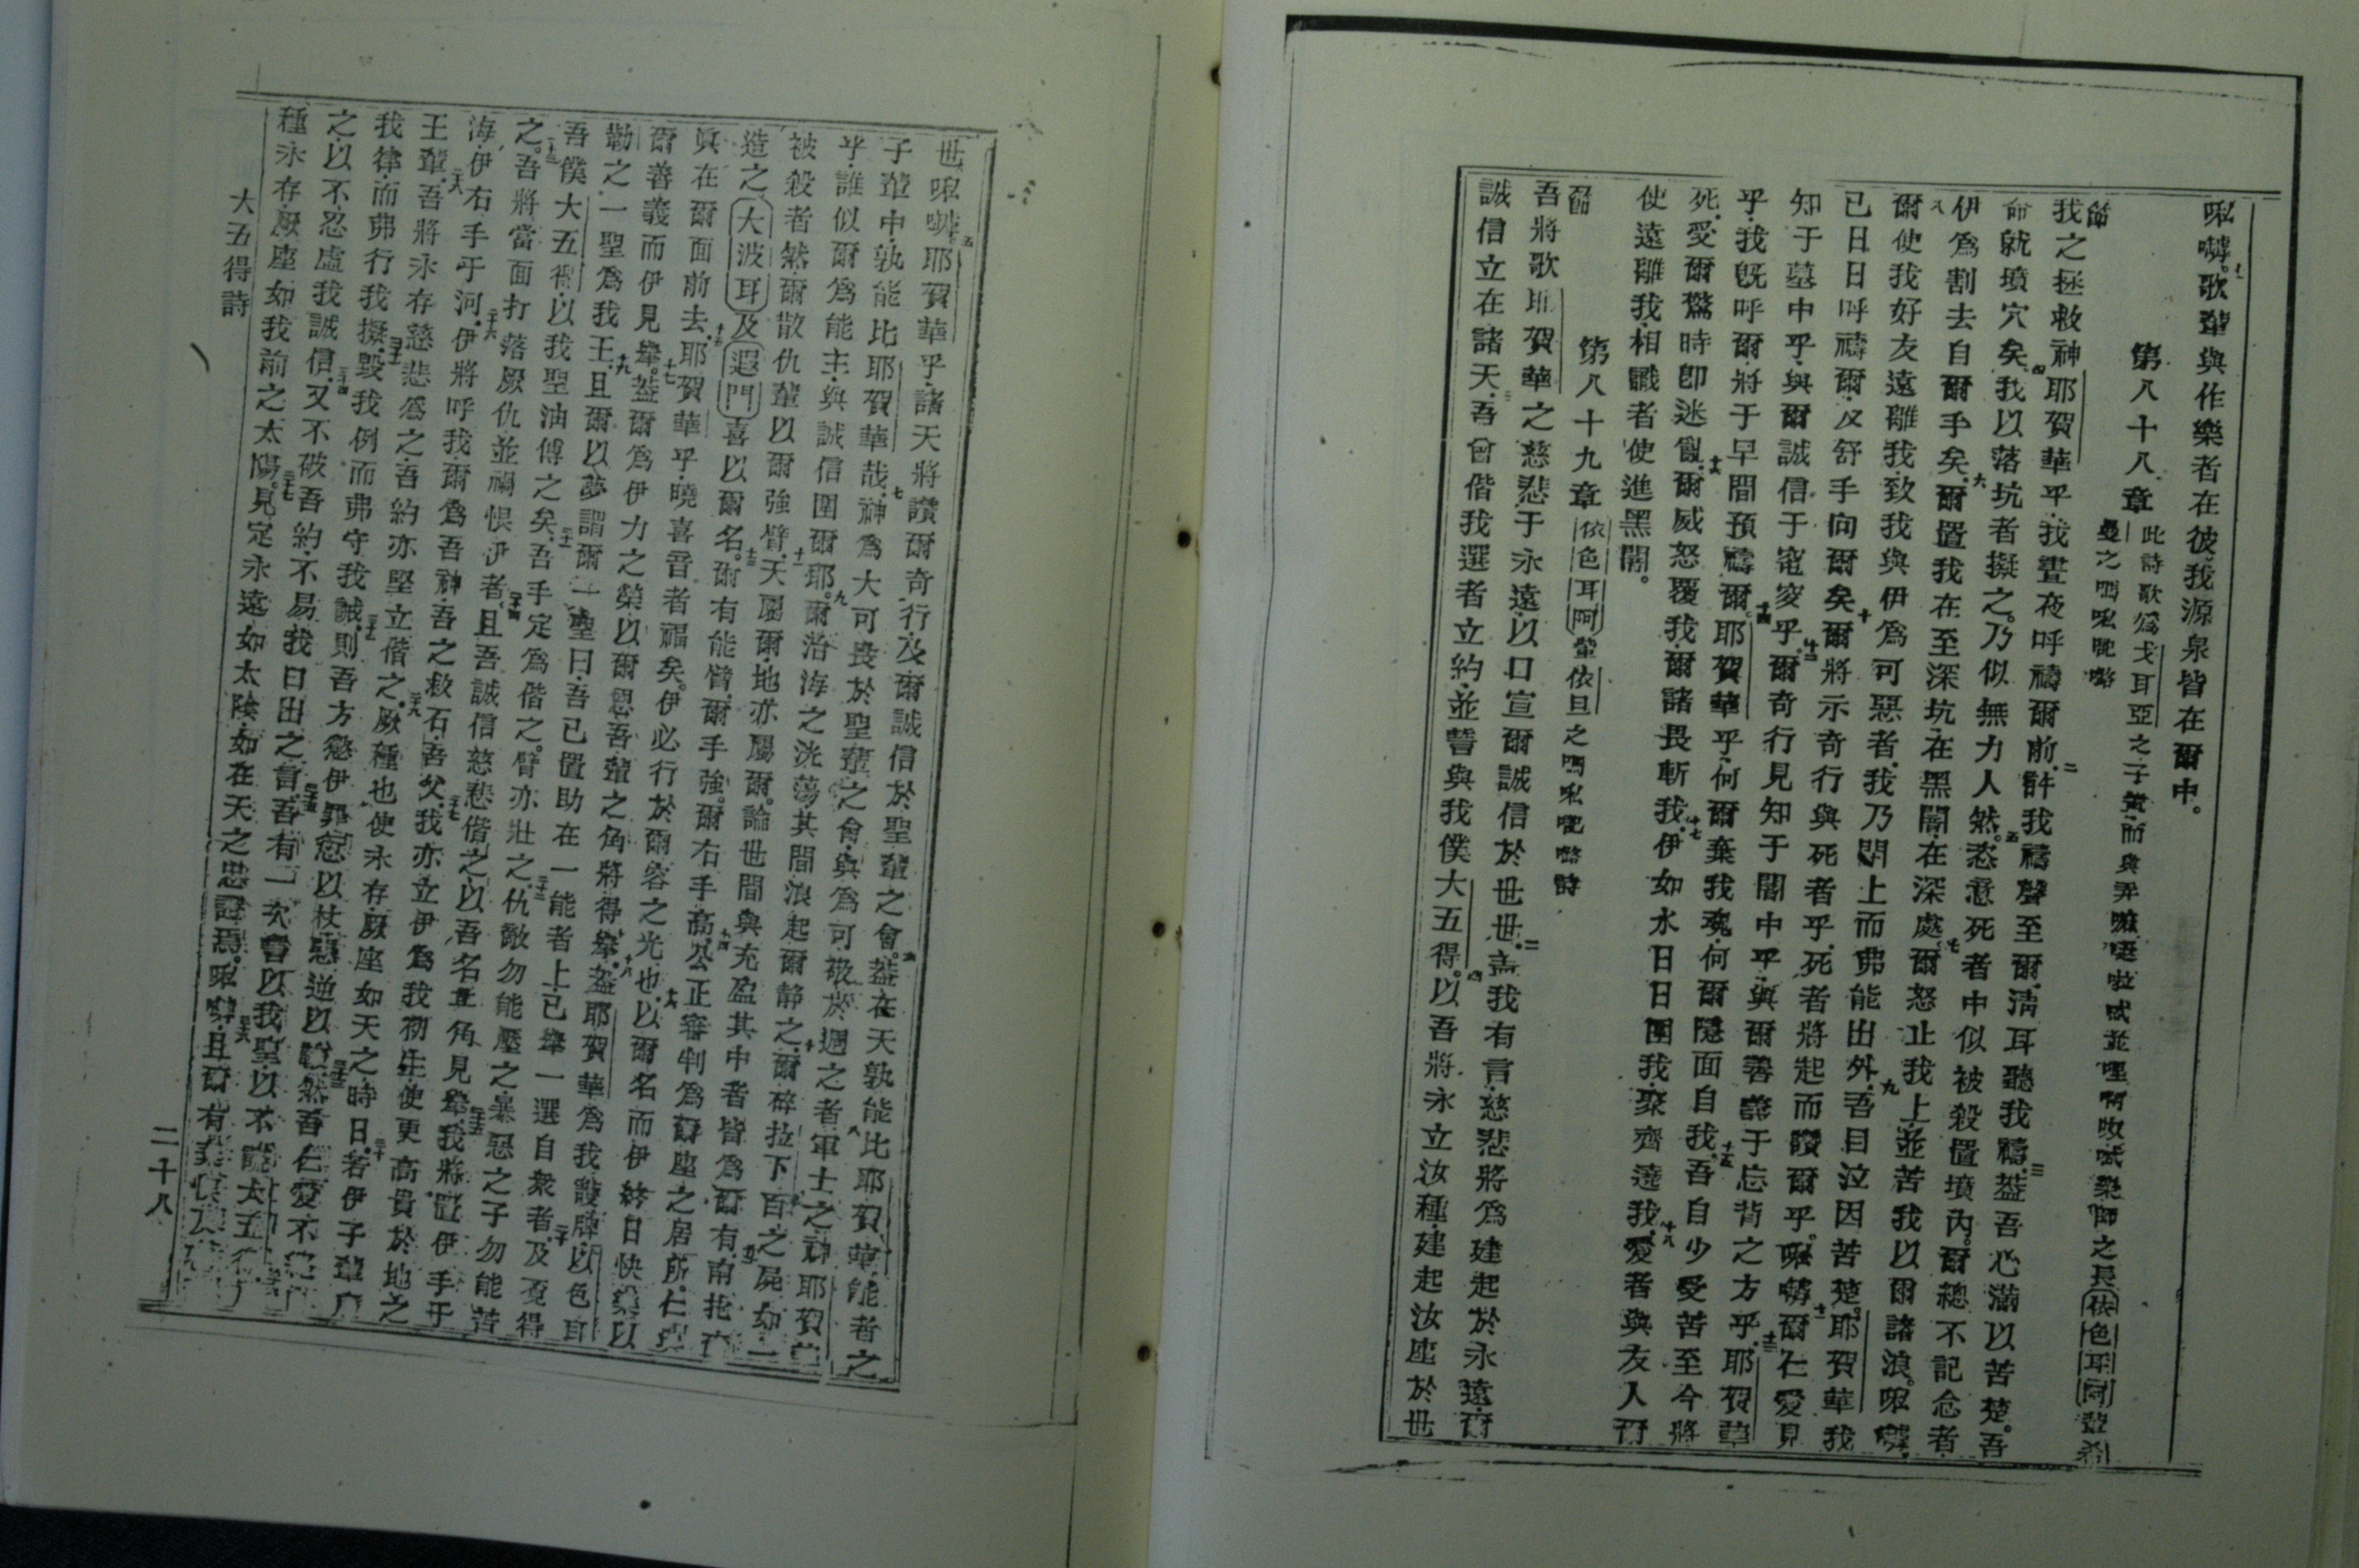 𠵽嗱歌輩與作樂者在彼我源泉皆在爾中。
第八十八章 此詩歌爲戈耳亞之子輩而與弄
曼之嗎
我之拯救神耶賀華乎我晝夜呼禱爾前二許我禱聲至爾淸耳聽我禱三葢吾心滿以苦楚。吾
命就墳穴矣四我以落坑者擬之。乃似無力人然。五恣意死者中似被殺置墳內。爾總不記念者
伊爲割去自爾手矣六爾置我在至深坑在黑闇在深處七爾怒止我上並苦我以爾諸浪。
八爾使我好友遠離我致我與伊爲可惡者我乃閉上而弗能出外九吾目泣因苦楚耶賀華我
已日日呼禱爾及舒手向爾矣十爾將示奇行與死者乎死者將起而讚爾乎。十一爾仁愛見
知于墓中乎與爾誠信于竈窔乎。十二爾奇行見知于闇中乎與爾善義于忘背之方乎十三耶賀華
乎我旣呼爾將于早間預禱爾十四耶賀華乎何爾棄我魂何爾隱面自我十五吾自少受苦至今將
死愛爾驚時卽迷亂十六爾威怒覆我爾諸畏斬我十七伊如水日日圍我聚齊遶我十八愛者與友人爾
使遠離我相識者使進黑闇。
第八十九章 依色耳阿輩依旦之嗎 詩
吾將歌耶賀華之慈悲于永遠以口宣爾誠信於世世二葢我有言慈悲將爲建起於永遠爾
誠信立在諸天三吾曾偕我選者立約並誓與我僕大五得四以吾將永立汝種建起汝座於世
世五耶賀華乎諸天將讚爾奇行及爾誠信於聖輩之會六葢在天孰能比耶賀華能者之
子輩中孰能比耶賀華哉七神爲大可畏於聖輩之會與爲可敬於週之者八軍士之神耶賀華
乎誰似爾爲能主與誠信圍爾耶九爾治海之洸蕩其間浪起爾静之十爾碎拉下百之屍如一
被殺者然爾散仇輩以爾強臂十一天屬爾地亦屬爾論世間與充盈其中者皆爲爾有
造之大波耳及遐門喜以爾名十三爾有能臂爾手強爾右手高十四公正審判爲爾座之居所。仁
眞在爾面前去十五耶賀華乎曉喜音者福矣。伊必行於爾容之光也十六以爾名而伊終日快樂以
爾善義而伊見舉。十七葢爾爲伊力之榮以爾恩吾輩之角將得舉十八葢耶賀華爲我護牌以色耳
勒之一聖爲我王十九且爾以夢謂爾一聖曰吾已置助在一能者上已舉一選自衆者二十及覓得
吾僕大五得以我聖油傅之矣吾手定爲偕之臂亦壯之仇敵勿能壓之暴惡之子勿能苦
之。吾將當面打落厥仇並禍恨伊者且吾誠信慈悲偕之以吾名其角見舉我將置伊手于
海伊右手于河伊將呼我爾爲吾神吾之救石吾父我亦立伊爲我初生使更高貴於地之
王輩吾將永存慈悲爲之吾約亦堅立偕之厥種也使永存厥座如天之時日若伊子輩
我律而弗行我擬毀我例而弗守我誡則吾方懲伊罪愆以杖惡逆以
之以不忍虛我誠信又不破吾約不易我口出之言吾有一次誓以我聖以不
種永存厥座如我前之太陽見定永遠如太陰如在天之忠證焉且爾有
大五得詩
二千八